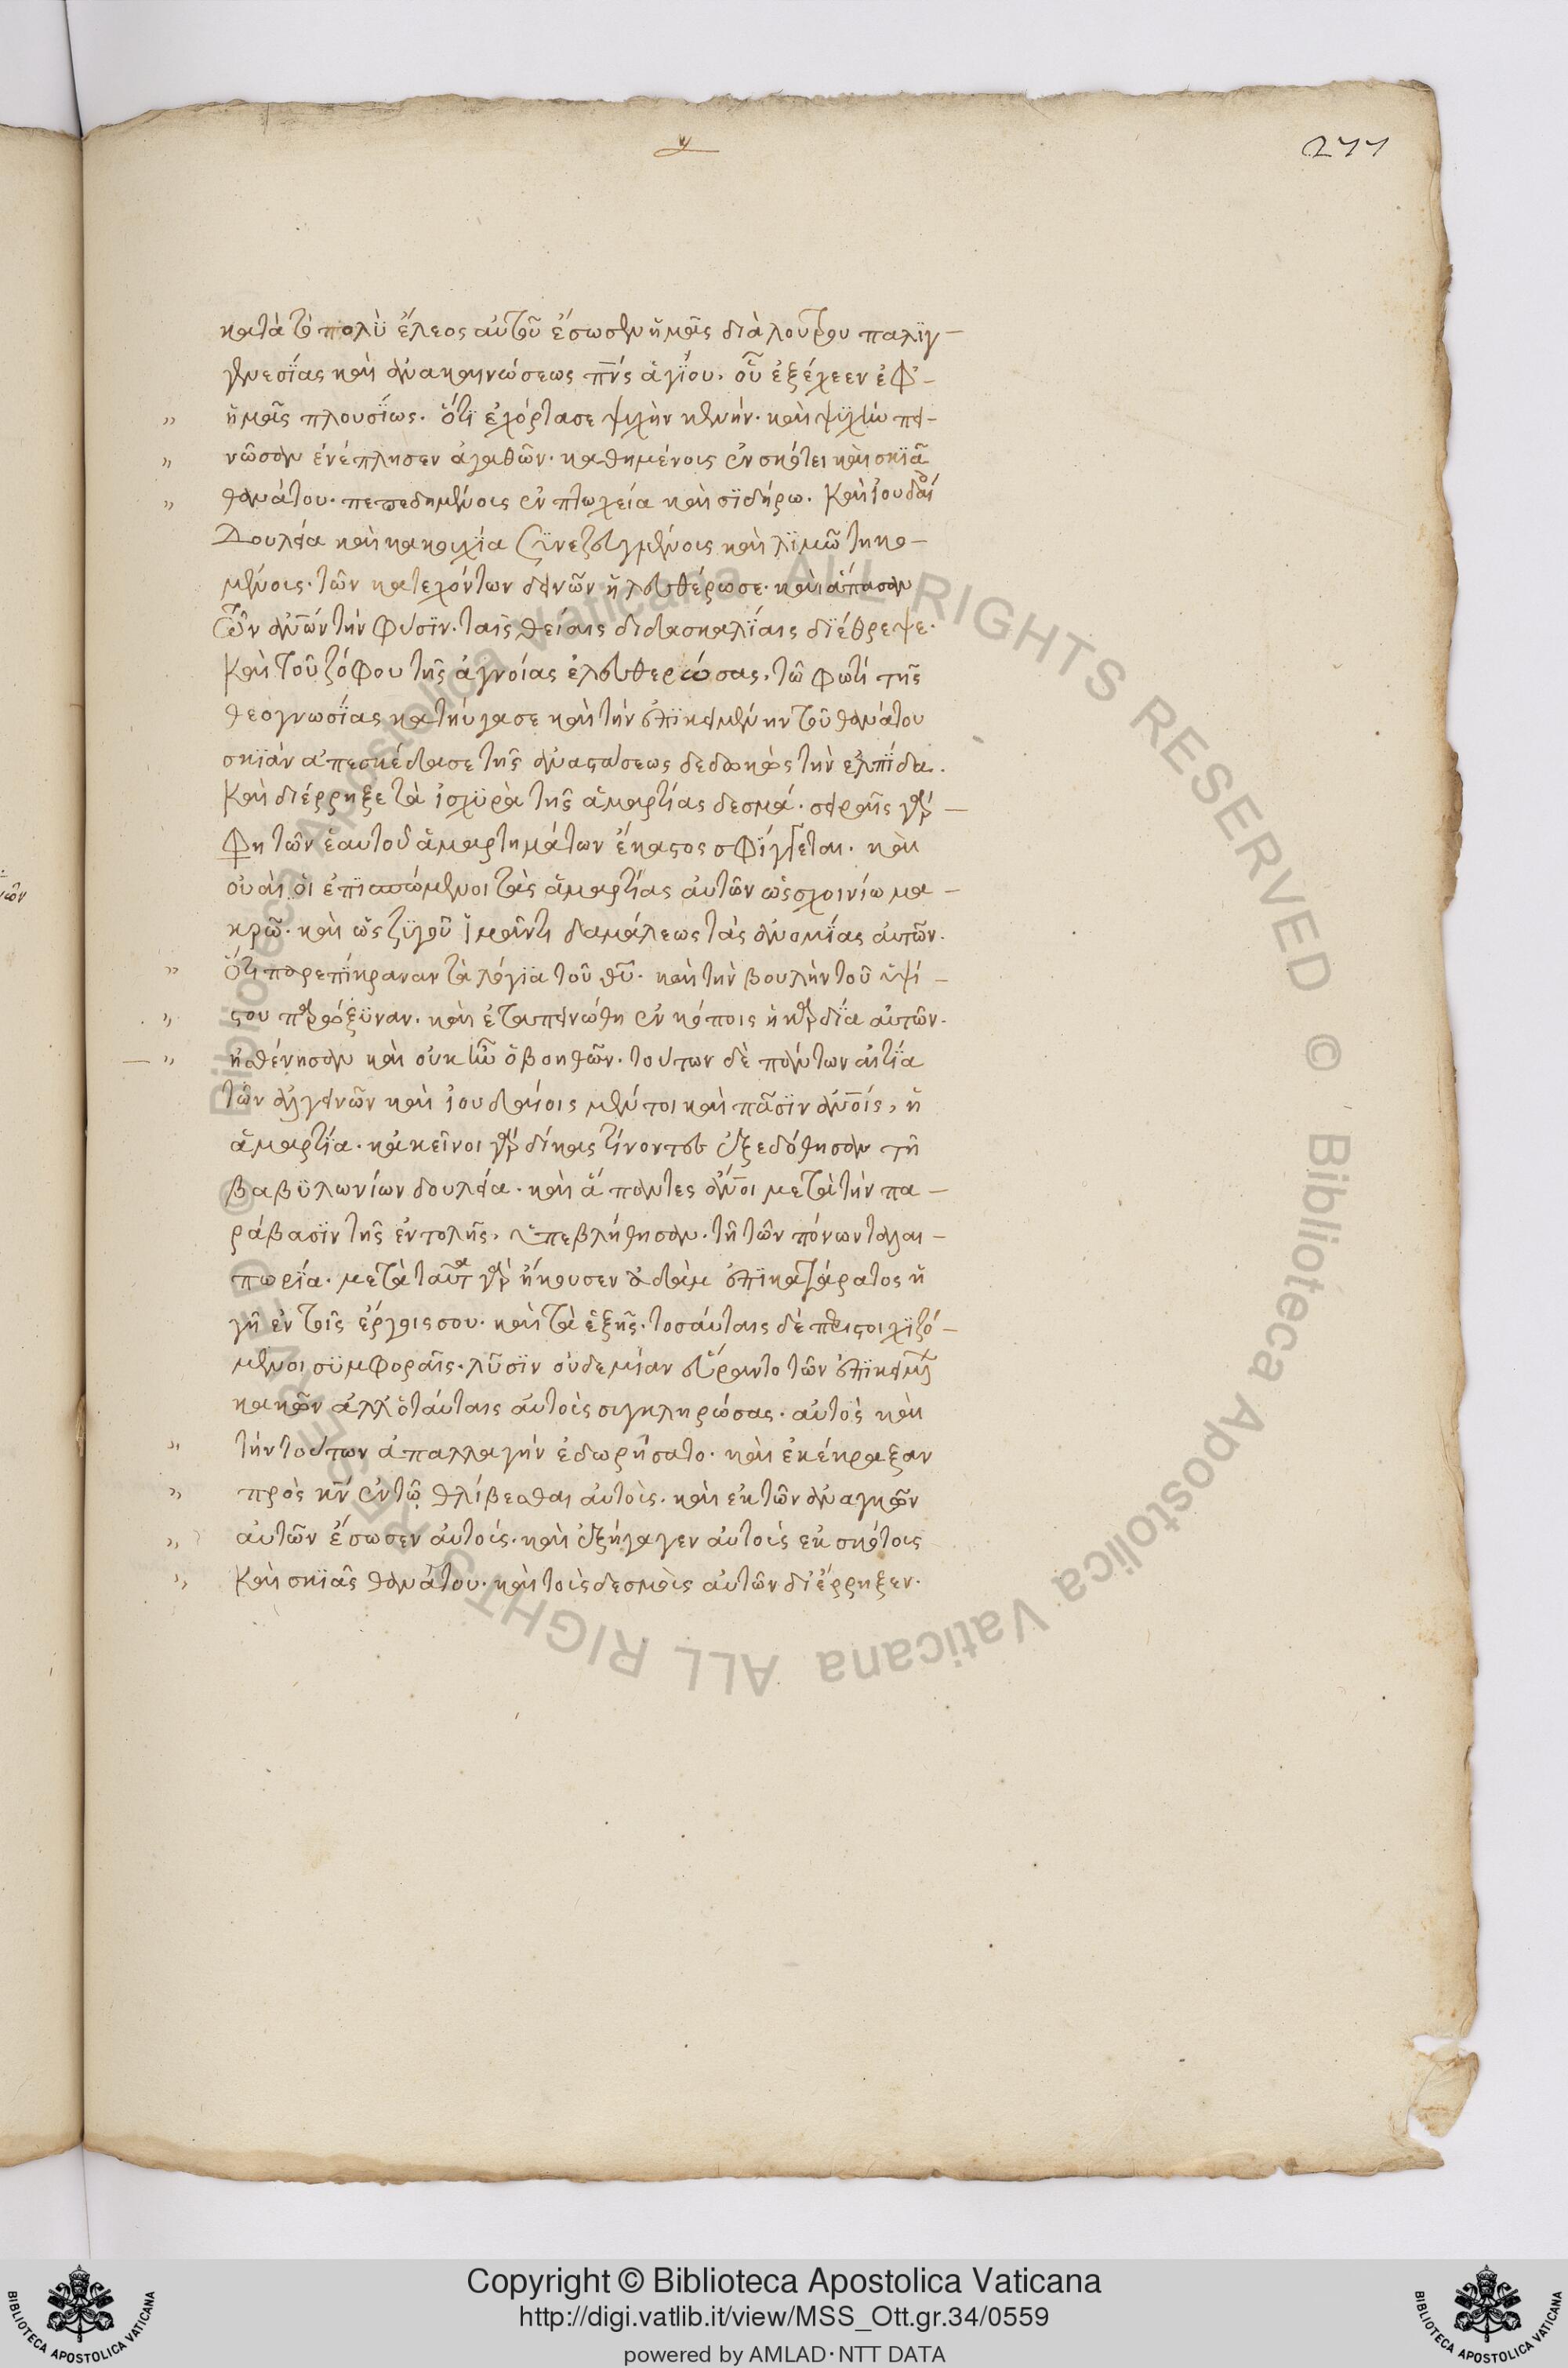 277
κατὰ τὸ πολὺ ἔλεος αὐτοῦ ἔσωσεν ἡμᾶς διὰ λουτροῦ παλιγ-
γενεσίας καὶ ἀνακαινώσεως πν̅ς ἁγίου. οὗ ἐξέχεεν ἐφ'-
ἡμᾶς πλουσίως. ὅτι ἐχόρτασε ψυχὴν κενήν. καὶ ψυχὴν πει-
νῶσαν ἐνέπλησεν ἀγαθῶν. καθημένοις ἐν σκότει καὶ σκιᾶ
θανάτου. πεπεδημένοις ἐν πτωχεία καὶ σιδήρω. καὶ ἰουδαίοι
δουλεία καὶ κακουχία συνεζευγμένοις καὶ λιμῶ τηκο-
μένοις. τῶν κατεχόντων δεινῶν ἠλευθέρωσε. καὶ ἅπασαν
τῶν αν̅ων τὴν φύσιν. ταῖς θείαις διδασκαλίαις διέθρεψε.
καὶ τοῦ ζόφου τῆς ἀγνοίας ἐλευθερώσας, τῶ φωτὶ τῆς
θεογνωσίας κατηύγασε καὶ τὴν ἐπικειμένην τοῦ θανάτου
σκιὰν ἀπεσκέδασε τῆς ἀναστάσεως δεδωκὼς τὴν ἐλπίδα.
καὶ διέρρηξε τὰ ἰσχυρὰ τῆς ἁμαρτίας δεσμά. σειραῖς γάρ-
φη τῶν ἑαυτοῦ ἁμαρτημάτων ἕκαστος σφίγγεται. καὶ
οὐαὶ οἱ ἐπισπώμενοι τὰς ἁμαρτίας αὐτῶν ὡς σχοινίω μα-
κρῶ. καὶ ὡς ζυγοῦ ἱμάντι δαμάλεως τὰς ἀνομίας αὐτῶν.
ὅτι παρεπίκραναν τὰ λόγια τοῦ θυ̅. καὶ τὴν βουλὴν τοῦ ὑψί-
στου παρώξυναν. καὶ ἐταπεινώθη ἐν κόποις ἡ καρδία αὐτῶν.
ἠσθένησαν καὶ οὐκ ἦν ὁ βοηθῶν. τούτων δὲ πάντων αἰτία
τῶν ἀλγεινῶν καὶ ἰουδαίοις μέντοι καὶ πᾶσιν αν̅οις, ἡ
ἁμαρτία. κἀκεῖνοι γάρ δίκας τίνοντες ἐξεδόθησαν τῆ
βαβυλωνίων δουλεία. καὶ ἅπαντες αν̅οι μετὰ τὴν πα-
ράβασιν τῆς ἐντολῆς, ὑπεβλήθησαν. τῆ τῶν πόνων ταλαι-
πωρία. μετὰ ταῦτα γὰρ ἤκουσεν ὁ ἀδὰμ ἐπικατάρατος ἡ
γῆ ἐν τοῖς ἔργοις σου. καὶ τὰ ἑξῆς. τοσαύταις δὲ περιστοιχιζό-
μενοι συμφοραῖς. λῦσιν οὐδεμίαν εὕραντο τῶν ἐπικειμένων
κακῶν ἀλλ' ὁ ταύταις αὐτοὺς συγκληρώσας. αὐτὸς καὶ
τὴν τούτων ἀπαλλαγὴν ἐδωρήσατο. καὶ ἐκέκραξαν
πρὸς κν̅ ἐν τῶ θλίβεσθαι αὐτούς. καὶ ἐκ τῶν ἀναγκῶν
αὐτῶν ἔσωσεν αὐτούς. καὶ ἐξήγαγεν αὐτοὺς ἐκ σκότους
καὶ σκιᾶς θανάτου. καὶ τοὺς δεσμοὺς αὐτῶν διέρρηξεν.
© Biblioteca Apostolica Vaticana ALL RIGHTS RESERVED © Biblioteca Apostolica Vaticana ALL RIGHTS RESERVED
Copyright © Biblioteca Apostolica Vaticana
http://digi.vatlib.it/view/MSS_Ott.gr.34/0559
powered by AMLAD·NTT DATA
BIBLIOTECA APOSTOLICA VATICANA
BIBLIOTECA APOSTOLICA VATICANA